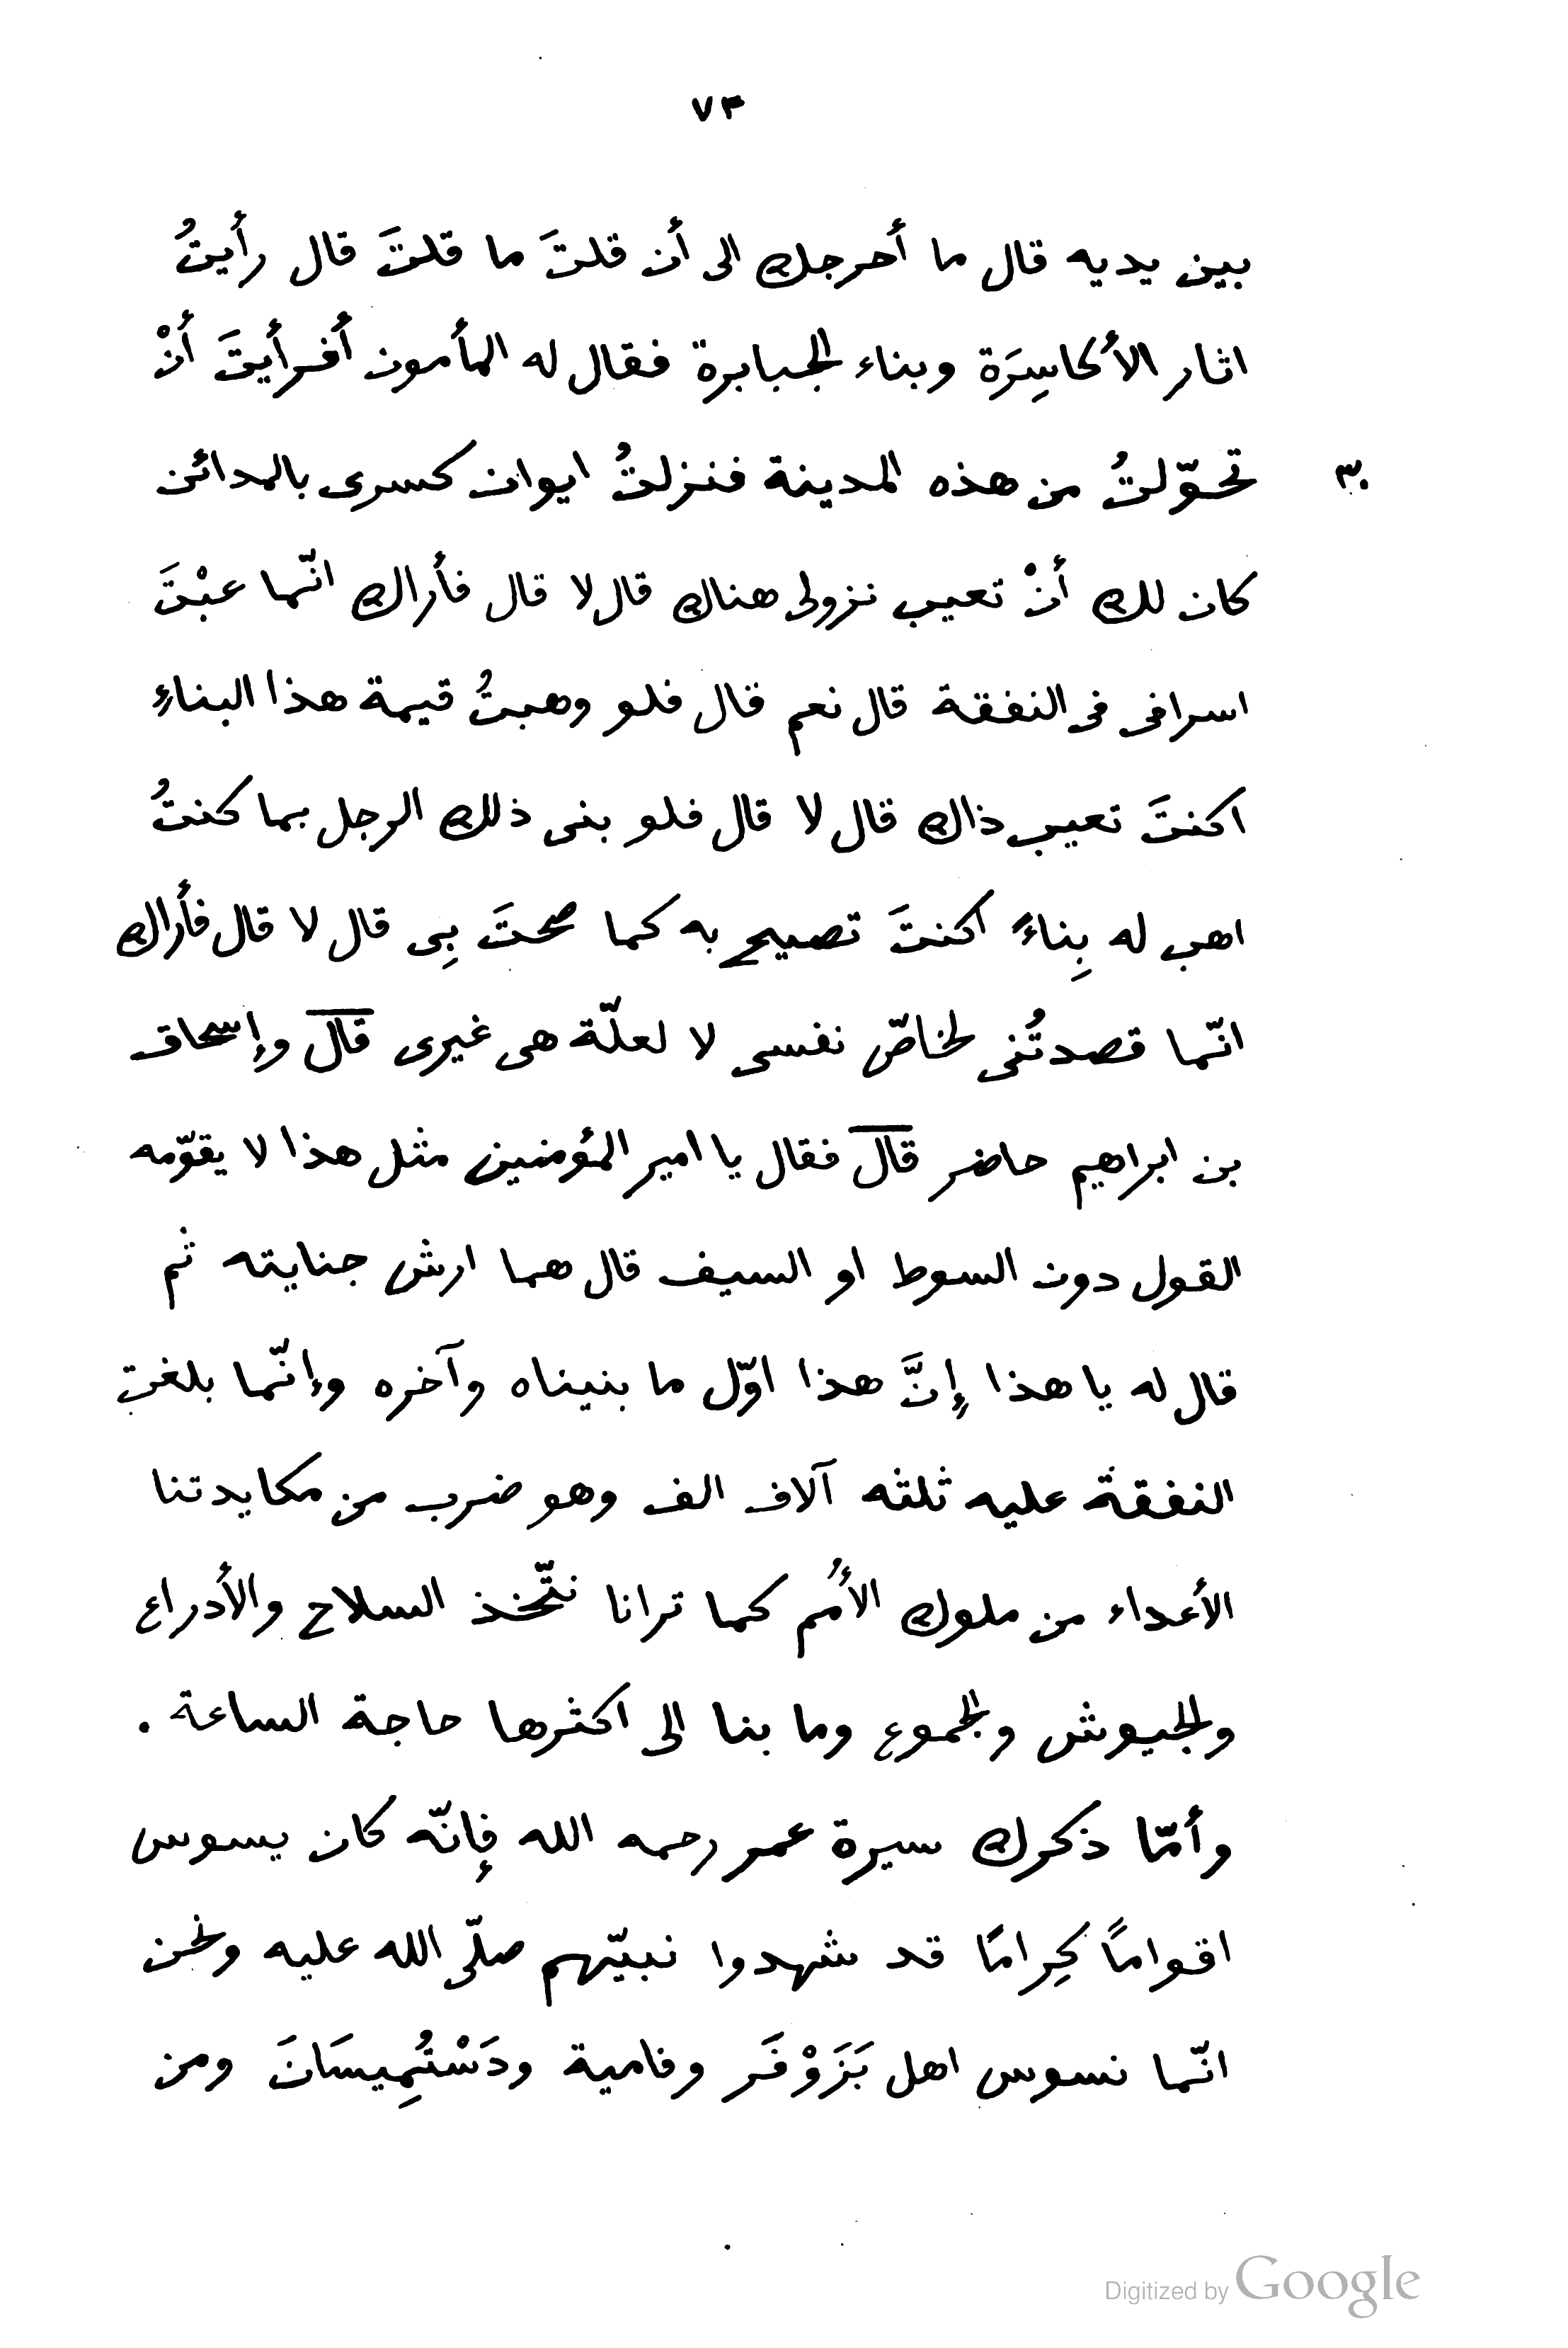 ٧٣
بين يديه قال ما أحرجك الى أن قلتَ ما قلتَ قال رأيتُ
اثار الأكاسِرَة وبناء الجبابرة فقال له المأمون أفرأيتَ أنْ
٣٠ تحوّلتُ من هذه المدينة فنزلتُ ايوان كسرى بالمدائن
كان لك أنْ تعيب نزولى هناك قال لا قال فأراك انّما عبْتَ
اسرافى فى النفقة قال نعم قال فلو وهبتُ قيمة هذا البناءِ
اكنتَ تعيب ذاك قال لا قال فلو بنى ذلك الرجل بما كنتُ
اهب له بِناءً اكنتَ تصيح به كما صحتَ بِى قال لا قال فأراك
انّما قصدتُنى لخاصّ نفسى لا لعلّة هى غيرى قال وإسحاق
بن ابراهيم حاضر قال فقال يا امير المؤمنين مثل هذا لا يقوّمه
القول دون السوط او السيف قال هما ارش جنايته ثم
قال له يا هذا إِنَّ هذا اوّل ما بنيناه وآخره وإنّما بلغت
النفقة عليه ثلثه آلاف الف وهو ضرب من مكايدتنا
الأعداء من ملوك الأُمم كما ترانا نتّخذ السلاح والأدراع
والجيوش والجموع وما بنا الى اكثرها حاجة الساعة .
وأمّا ذكرك سيرة عمر رحمه الله فإنّه كان يسوس
اقوامًا كِرامًا قد شهدوا نبيّهم صلّى الله عليه ونحن
انّما نسوس اهل بَزَوْفَر وفامية ودَسْتُمِيسَانَ ومن
Digitized by Google